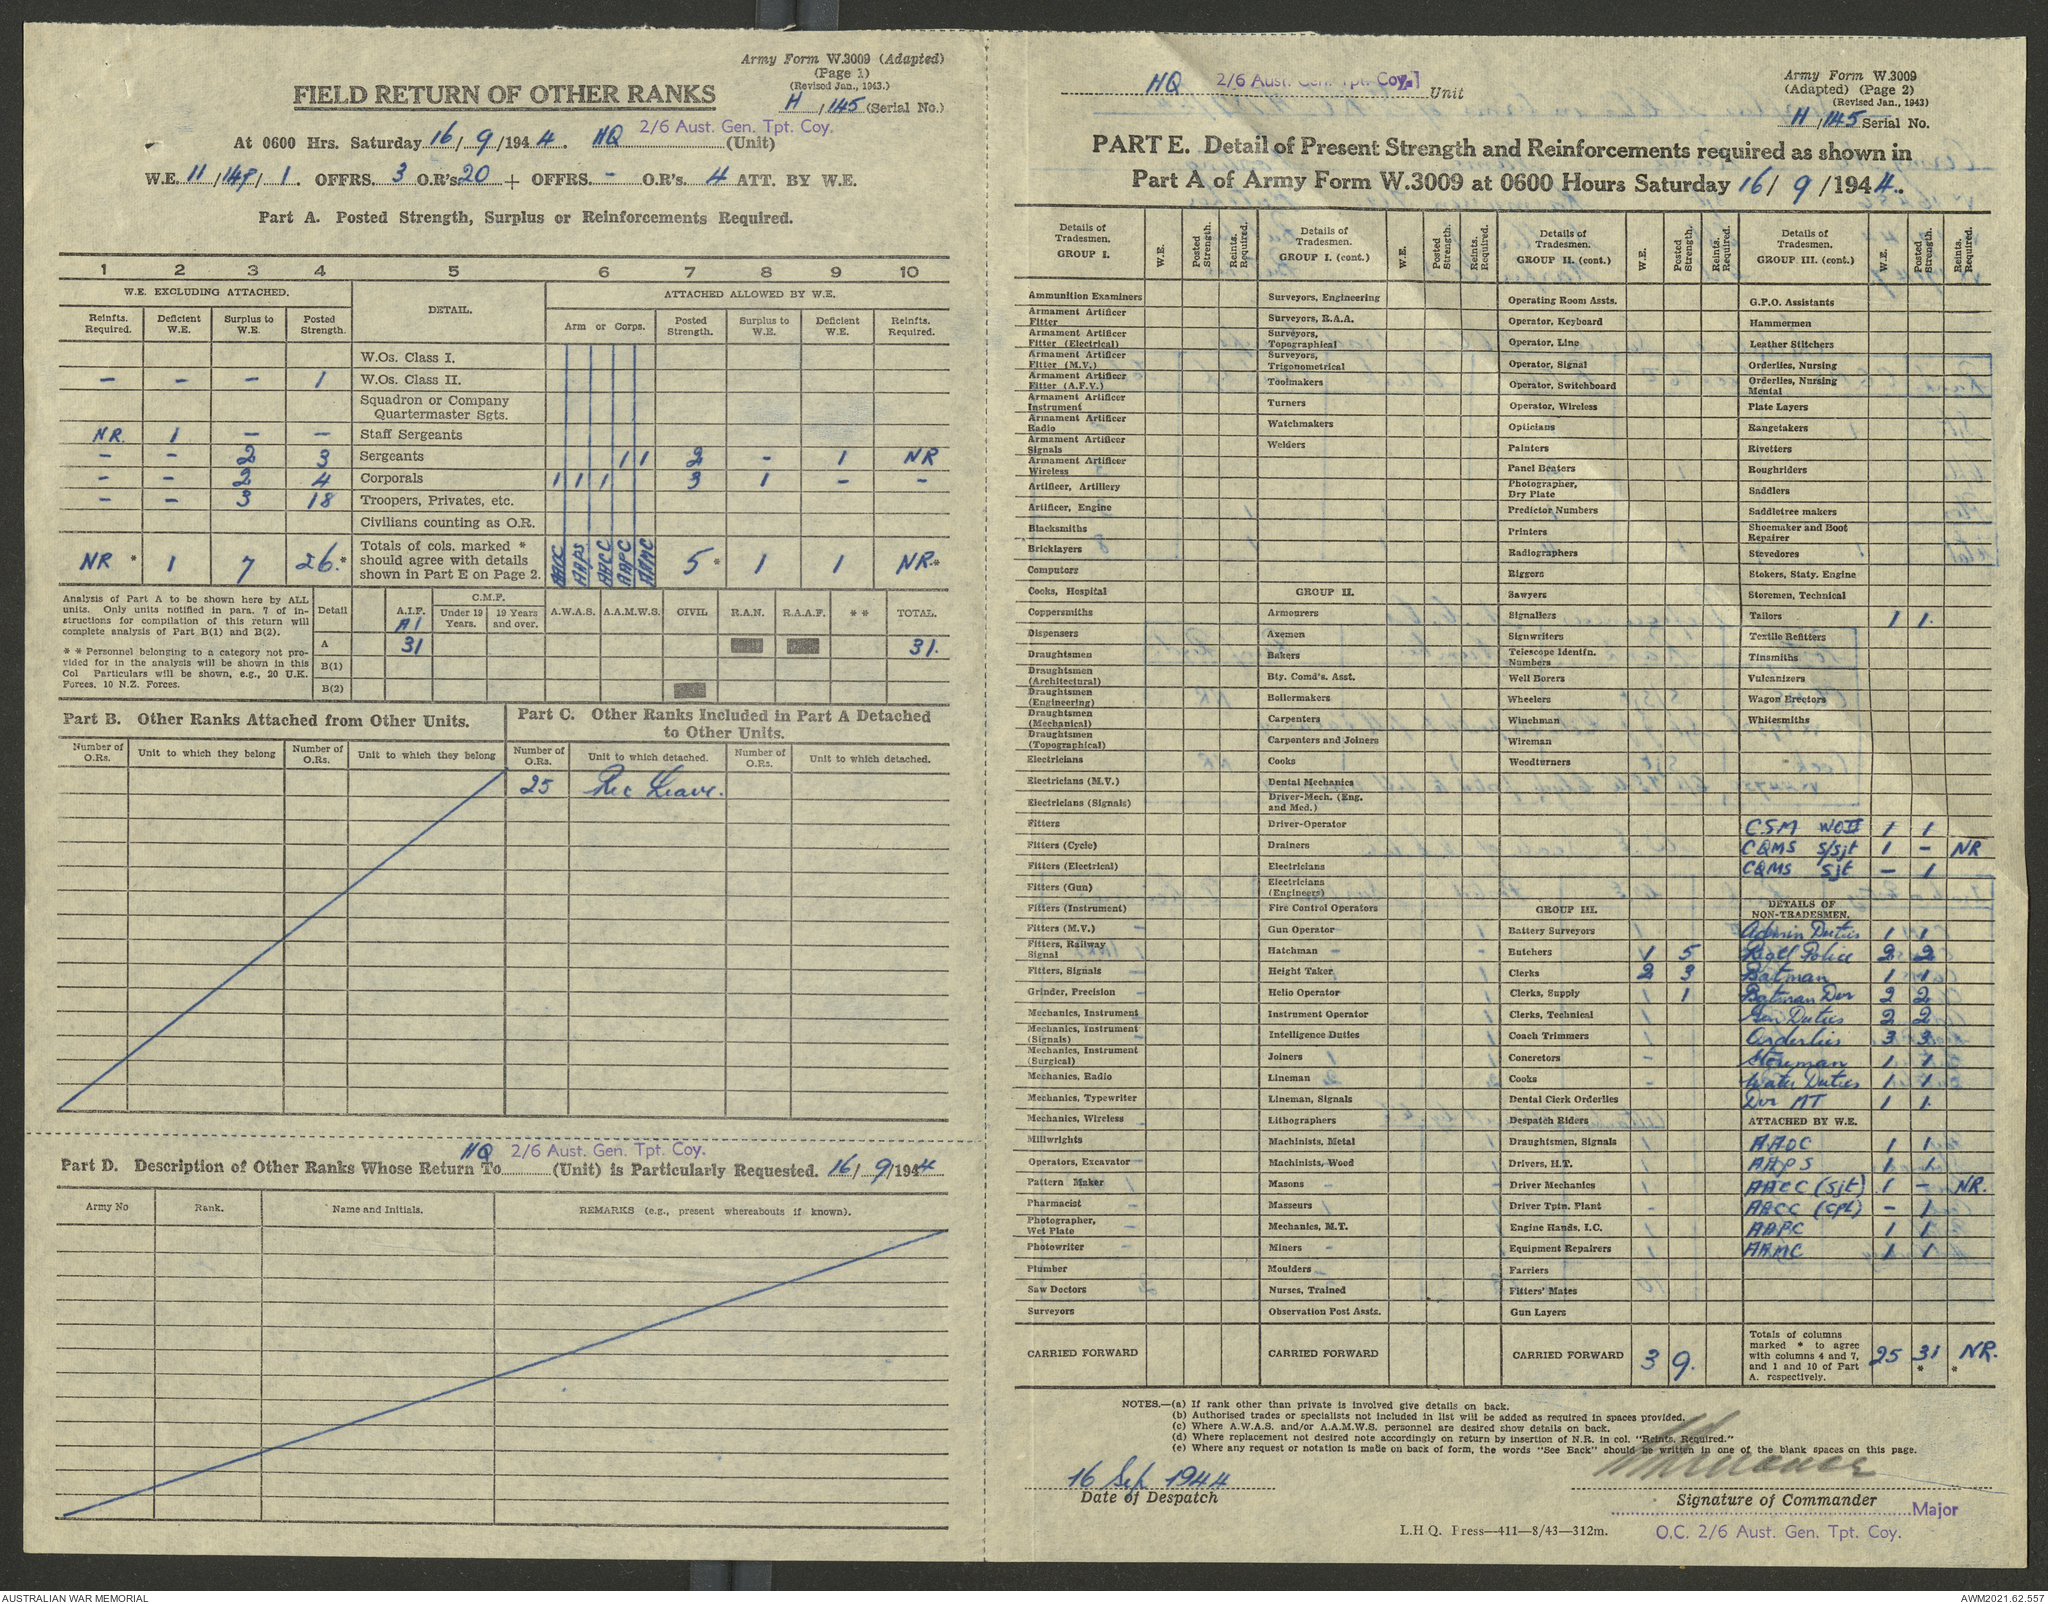 Army Form W.3009 (Adapted)
(Page 1)
(Revised Jan., 1943.)
H / 145 (Serial No.)
FIELD RETURN OF OTHER RANKS
At 0600 Hrs. Saturday 16 / 9 /1944. HQ 2/6 Aust. Gen. Tpt. Coy. (Unit)
W.E. 11 / 148 / 1. OFFRS. 3 O.R's 20 + OFFRS. - O.R's. 4 ATT. BY W.E.
Part A. Posted Strength, Surplus or Reinforcements Required.
1 2 3 4 5 6 7 8 9 10
W.E. EXCLUDING ATTACHED. DETAIL. ATTACHED ALLOWED BY W.E.
Reinfts. Required. Deficient W.E. Surplus to W.E. Posted Strength. Arm or Corps. Posted Strength. Surplus to W.E. Deficient W.E. Reinfts. Required.
W.Os. Class I.
- - - 1 W.Os. Class II.
Squadron or Company Quartermaster Sgts.
NR. 1 - - Staff Sergeants
- - 2 3 Sergeants 1 1 2 - 1 NR
- - 2 4 Corporals 1 1 1 3 1 - -
- - 3 18 Troopers, Privates, etc.
Civilians counting as O.R.
NR * 1 7 26.* Totals of cols. marked * should agree with details shown in Part E on Page 2. AAOC AAPS AACC AAPC AAMC 5 * 1 1 NR.*
Analysis of Part A to be shown here by ALL units. Only units notified in para. 7 of instructions for compilation of this return will complete analysis of Part B(1) and B(2).
* * Personnel belonging to a category not provided for in the analysis will be shown in this Col Particulars will be shown, e.g., 20 U.K. Forces, 10 N.Z. Forces.
Detail A.I.F. A1 C.M.F. Under 19 Years. 19 Years and over. A.W.A.S. A.A.M.W.S. CIVIL R.A.N. R.A.A.F. * * TOTAL.
A 31 31.
B(1)
B(2)
Part B. Other Ranks Attached from Other Units.
Part C. Other Ranks Included in Part A Detached to Other Units.
Number of O.Rs. Unit to which they belong Number of O.Rs. Unit to which they belong Number of O.Rs. Unit to which detached. Number of O.Rs. Unit to which detached.
25 Rec Leave.
HQ 2/6 Aust. Gen. Tpt. Coy.
Part D. Description of Other Ranks Whose Return To (Unit) is Particularly Requested. 16/ 9/1944
Army No Rank. Name and Initials. REMARKS (e.g., present whereabouts if known).
HQ 2/6 Aust. Gen. Tpt. Coy. Unit
Army Form W.3009
(Adapted) (Page 2)
(Revised Jan., 1943)
H / 145 Serial No.
PART E. Detail of Present Strength and Reinforcements required as shown in
Part A of Army Form W.3009 at 0600 Hours Saturday 16/ 9 /1944.
Details of Tradesmen. GROUP I. W.E. Posted Strength. Reints. Required.
Ammunition Examiners
Armament Artificer Fitter
Armament Artificer Fitter (Electrical)
Armament Artificer Fitter (M.V.)
Armament Artificer Fitter (A.F.V.)
Armament Artificer Instrument
Armament Artificer Radio
Armament Artificer Signals
Armament Artificer Wireless
Artificer, Artillery
Artificer, Engine
Blacksmiths
Bricklayers
Computors
Cooks, Hospital
Coppersmiths
Dispensers
Draughtsmen
Draughtsmen (Architectural)
Draughtsmen (Engineering)
Draughtsmen (Mechanical)
Draughtsmen (Topographical)
Electricians
Electricians (M.V.)
Electricians (Signals)
Fitters
Fitters (Cycle)
Fitters (Electrical)
Fitters (Gun)
Fitters (Instrument)
Fitters (M.V.)
Fitters, Railway Signal
Fitters, Signals
Grinder, Precision
Mechanics, Instrument
Mechanics, Instrument (Signals)
Mechanics, Instrument (Surgical)
Mechanics, Radio
Mechanics, Typewriter
Mechanics, Wireless
Millwrights
Operators, Excavator
Pattern Maker
Pharmacist
Photographer, Wet Plate
Photowriter
Plumber
Saw Doctors
Surveyors
CARRIED FORWARD
Details of Tradesmen. GROUP I. (cont.) W.E. Posted Strength. Reints. Required.
Surveyors, Engineering
Surveyors, R.A.A.
Surveyors, Topographical
Surveyors, Trigonometrical
Toolmakers
Turners
Watchmakers
Welders
GROUP II.
Armourers
Axemen
Bakers
Bty. Comd's. Asst.
Boilermakers
Carpenters
Carpenters and Joiners
Cooks
Dental Mechanics
Driver-Mech. (Eng. and Med.)
Driver-Operator
Drainers
Electricians
Electricians (Engineers)
Fire Control Operators
Gun Operator
Hatchman
Height Taker
Helio Operator
Instrument Operator
Intelligence Duties
Joiners
Lineman
Lineman, Signals
Lithographers
Machinists, Metal
Machinists, Wood
Masons
Masseurs
Mechanics, M.T.
Miners
Moulders
Nurses, Trained
Observation Post Assts.
CARRIED FORWARD
Details of Tradesmen. GROUP II. (cont.) W.E. Posted Strength. Reints. Required.
Operating Room Assts.
Operator, Keyboard
Operator, Line
Operator, Signal
Operator, Switchboard
Operator, Wireless
Opticians
Painters
Panel Beaters
Photographer, Dry Plate
Predictor Numbers
Printers
Radiographers
Riggers
Sawyers
Signallers
Signwriters
Telescope Identfn. Numbers
Well Borers
Wheelers
Winchman
Wireman
Woodturners
GROUP III.
Battery Surveyors
Butchers 1 5
Clerks 2 3
Clerks, Supply 1
Clerks, Technical
Coach Trimmers
Concretors
Cooks
Dental Clerk Orderlies
Despatch Riders
Draughtsmen, Signals
Drivers, H.T.
Driver Mechanics
Driver Tptn. Plant
Engine Hands, I.C.
Equipment Repairers
Farriers
Fitters' Mates
Gun Layers
CARRIED FORWARD 3 9.
Details of Tradesmen. GROUP III. (cont.) W.E. Posted Strength. Reints. Required.
G.P.O. Assistants
Hammermen
Leather Stitchers
Orderlies, Nursing
Orderlies, Nursing Mental
Plate Layers
Rangetakers
Rivetters
Roughriders
Saddlers
Saddletree makers
Shoemaker and Boot Repairer
Stevedores
Stokers, Staty. Engine
Storemen, Technical
Tailors 1 1.
Textile Refitters
Tinsmiths
Vulcanizers
Wagon Erectors
Whitesmiths
CSM WOII 1 1
CQMS S/Sjt 1 - NR
CQMS Sjt - 1
DETAILS OF NON-TRADESMEN.
Admin Duties 1 1
Regtl Police 2 2
Batman 1 1
Batman Dvr 2 2
Gen Duties 2 2
Orderlies 3 3
Storeman 1 1
Water Duties 1 1
Dvr MT 1 1.
ATTACHED BY W.E.
AAOC 1 1
AAPS 1 1
AACC (Sjt) 1 - NR.
AACC (Cpl) - 1
AAPC 1 1
AAMC 1 1
Totals of columns marked * to agree with columns 4 and 7, and 1 and 10 of Part A. respectively. 25 31 * NR. *
NOTES.—(a) If rank other than private is involved give details on back.
(b) Authorised trades or specialists not included in list will be added as required in spaces provided.
(c) Where A.W.A.S. and/or A.A.M.W.S. personnel are desired show details on back.
(d) Where replacement not desired note accordingly on return by insertion of N.R. in col. "Reints. Required."
(e) Where any request or notation is made on back of form, the words "See Back" should be written in one of the blank spaces on this page.
16 Sep 1944
Date of Despatch
Signature of Commander
Major
L.H.Q. Press—411—8/43—312m.
O.C. 2/6 Aust. Gen. Tpt. Coy.
AUSTRALIAN WAR MEMORIAL
AWM2021.62.557